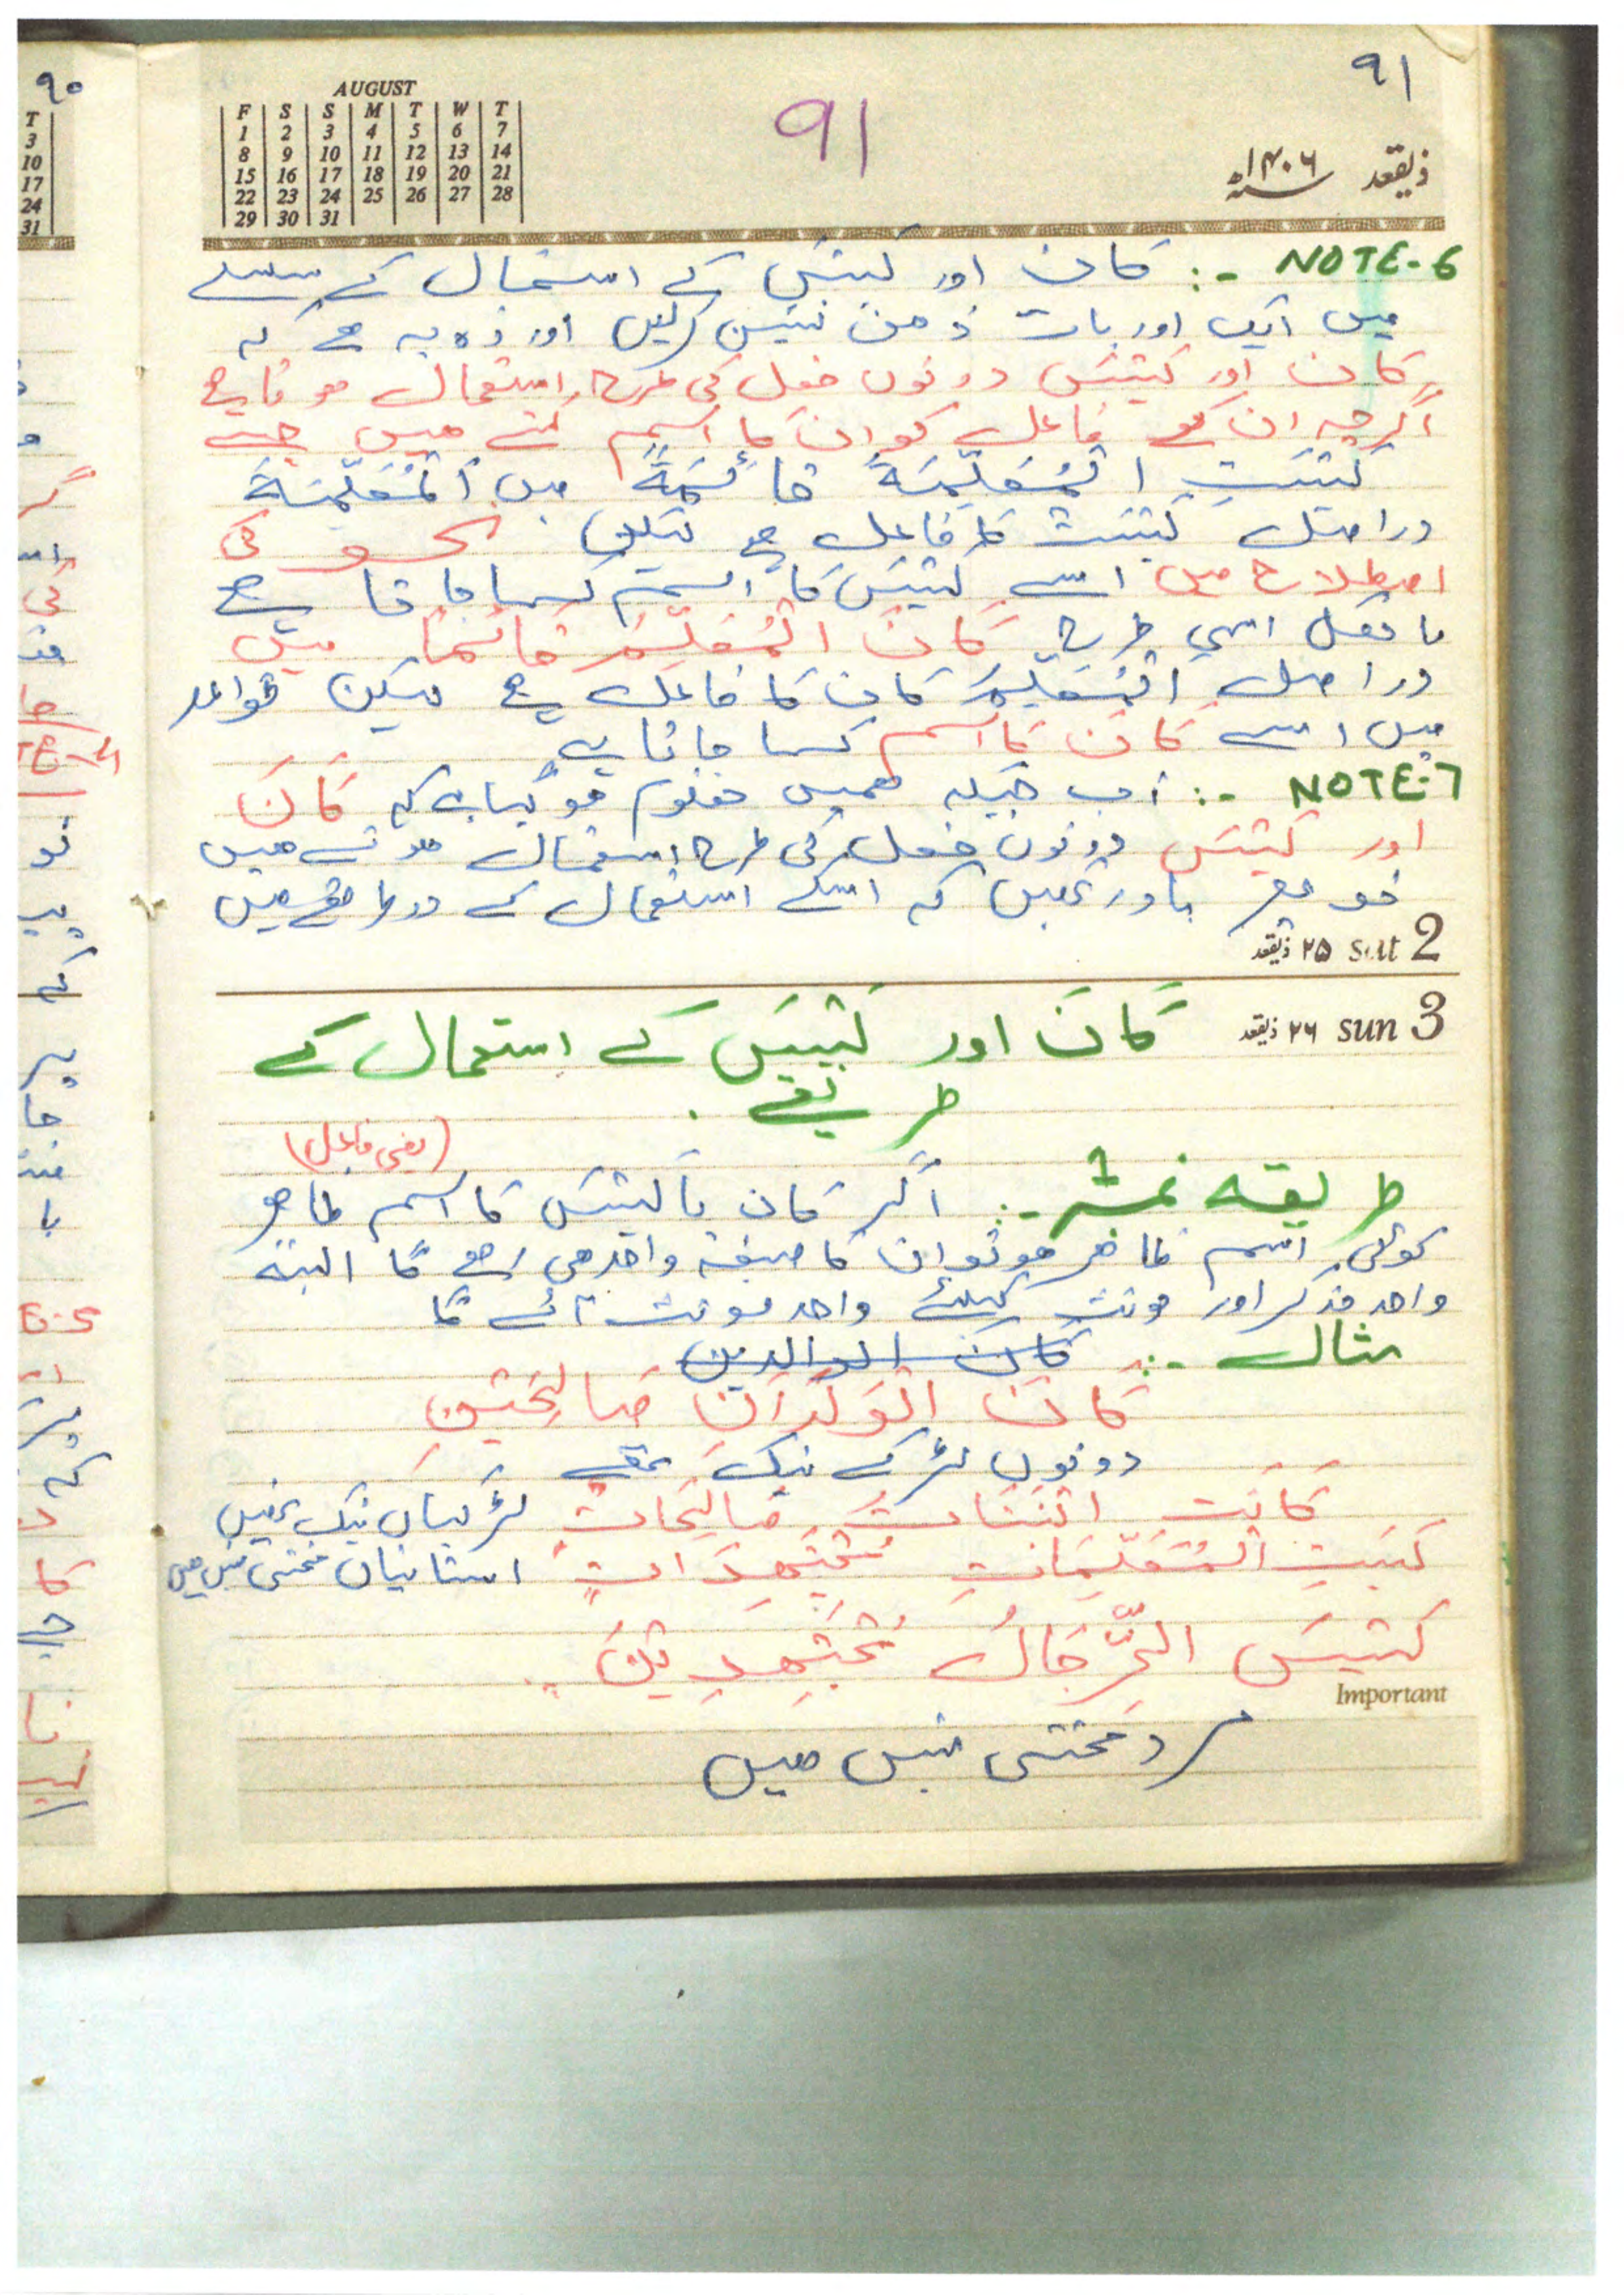 ۹۱
91
AUGUST
F S S M T W T
1 2 3 4 5 6 7
8 9 10 11 12 13 14
15 16 17 18 19 20 21
22 23 24 25 26 27 28
29 30 31
ذیقعد ۱۴۰۶ھ
NOTE-6 :- کان اور لیس کے استعمال کے سلسلے
میں ایک اور بات ذہن نشین کرلیں اور وہ یہ ہے کہ
کان اور لیس دونوں فعل کی طرح استعمال ہوتا ہے
اگرچہ ان کے فاعل کو ان کا اسم کہتے ہیں جیسے
لَیْسَتِ الْمُعَلِّمَۃُ قَائِمَۃً میں اَلْمُعَلِّمَۃُ
دراصل لیست کا فاعل ہے لیکن نحو کی
اصطلاح میں اسے لیس کا اسم کہا جاتا ہے
بالکل اسی طرح کَانَ الْمُعَلِّمُ قَائِمًا میں
دراصل المُعَلِّمُ کان کا فاعل ہے لیکن قواعد
میں اسے کان کا اسم کہا جاتا ہے
NOTE-7 :- اب جبکہ ہمیں معلوم ہوگیا ہے کہ کَانَ
اور لَیْسَ دونوں فعل کی طرح استعمال ہوتے ہیں
تو پھر یاد رکھیں کہ اسکے استعمال کے دو طریقے ہیں
۲۵ ذیقعد sat 2
۲۶ ذیقعد sun 3
کَانَ اور لَیْسَ کے استعمال کے
طریقے
(یعنی فاعل)
طریقہ نمبر 1 :- اگر کان یا لیس کا اسم ظاہر
کوئی اسم ظاہر ہو تو ان کا صیغہ واحد ہی رہے گا البتہ
واحد مذکر اور مونث کیلئے واحد مونث آئے گا
مثال :- کان الوالدین
کَانَ الْوَلَدَانِ صَالِحَیْنِ
دونوں لڑکے نیک تھے
کَانَتِ الْبَنَاتُ صَالِحَاتٍ لڑکیاں نیک تھیں
لَیْسَتِ الْمُعَلِّمَاتُ مُجْتَہِدَاتٍ استانیاں محنتی نہیں ہیں
لَیْسَ الرِّجَالُ مُجْتَہِدِیْنَ
Important
مرد محنتی نہیں ہیں
۹۰
T
3
10
17
24
31